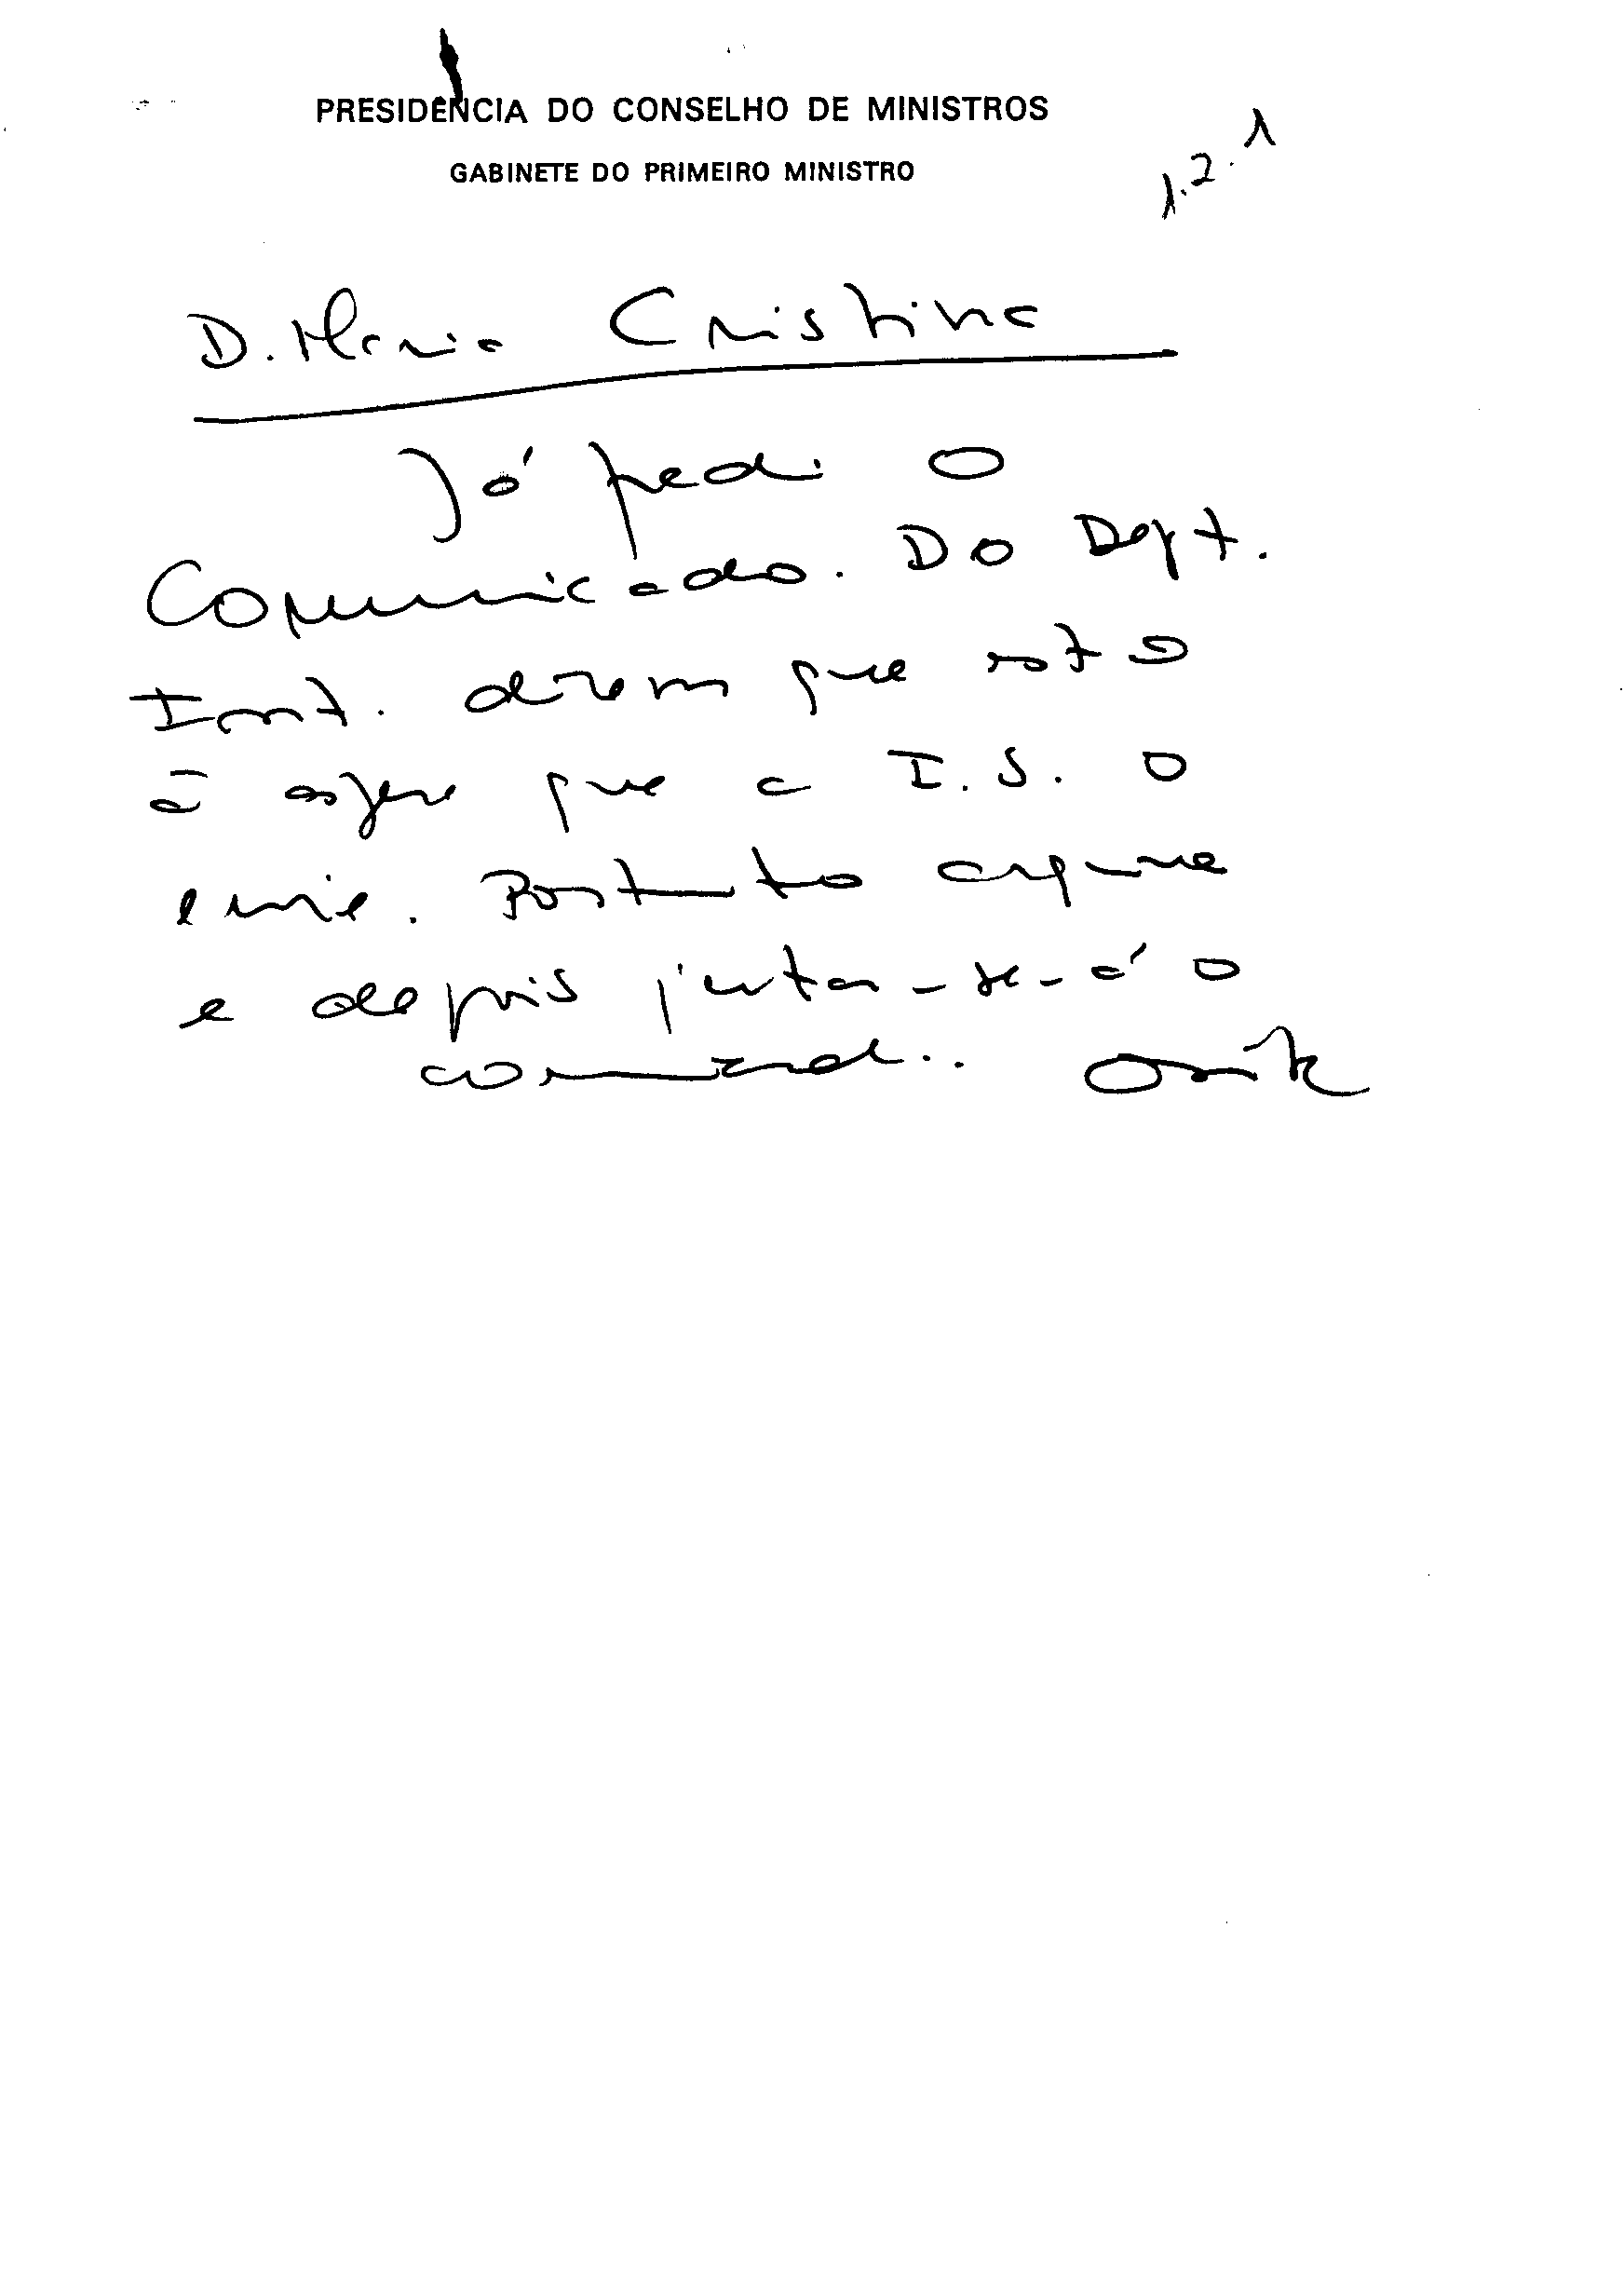 PRESIDÊNCIA DO CONSELHO DE MINISTROS
GABINETE DO PRIMEIRO MINISTRO
1.2.1
D. Maria Cristina
Já pedi o
Comunicado. Do Dept.
Int. dizem que estão
à espera que a I.S. o
envie. Portanto arquive
e depois juntar-se-á o